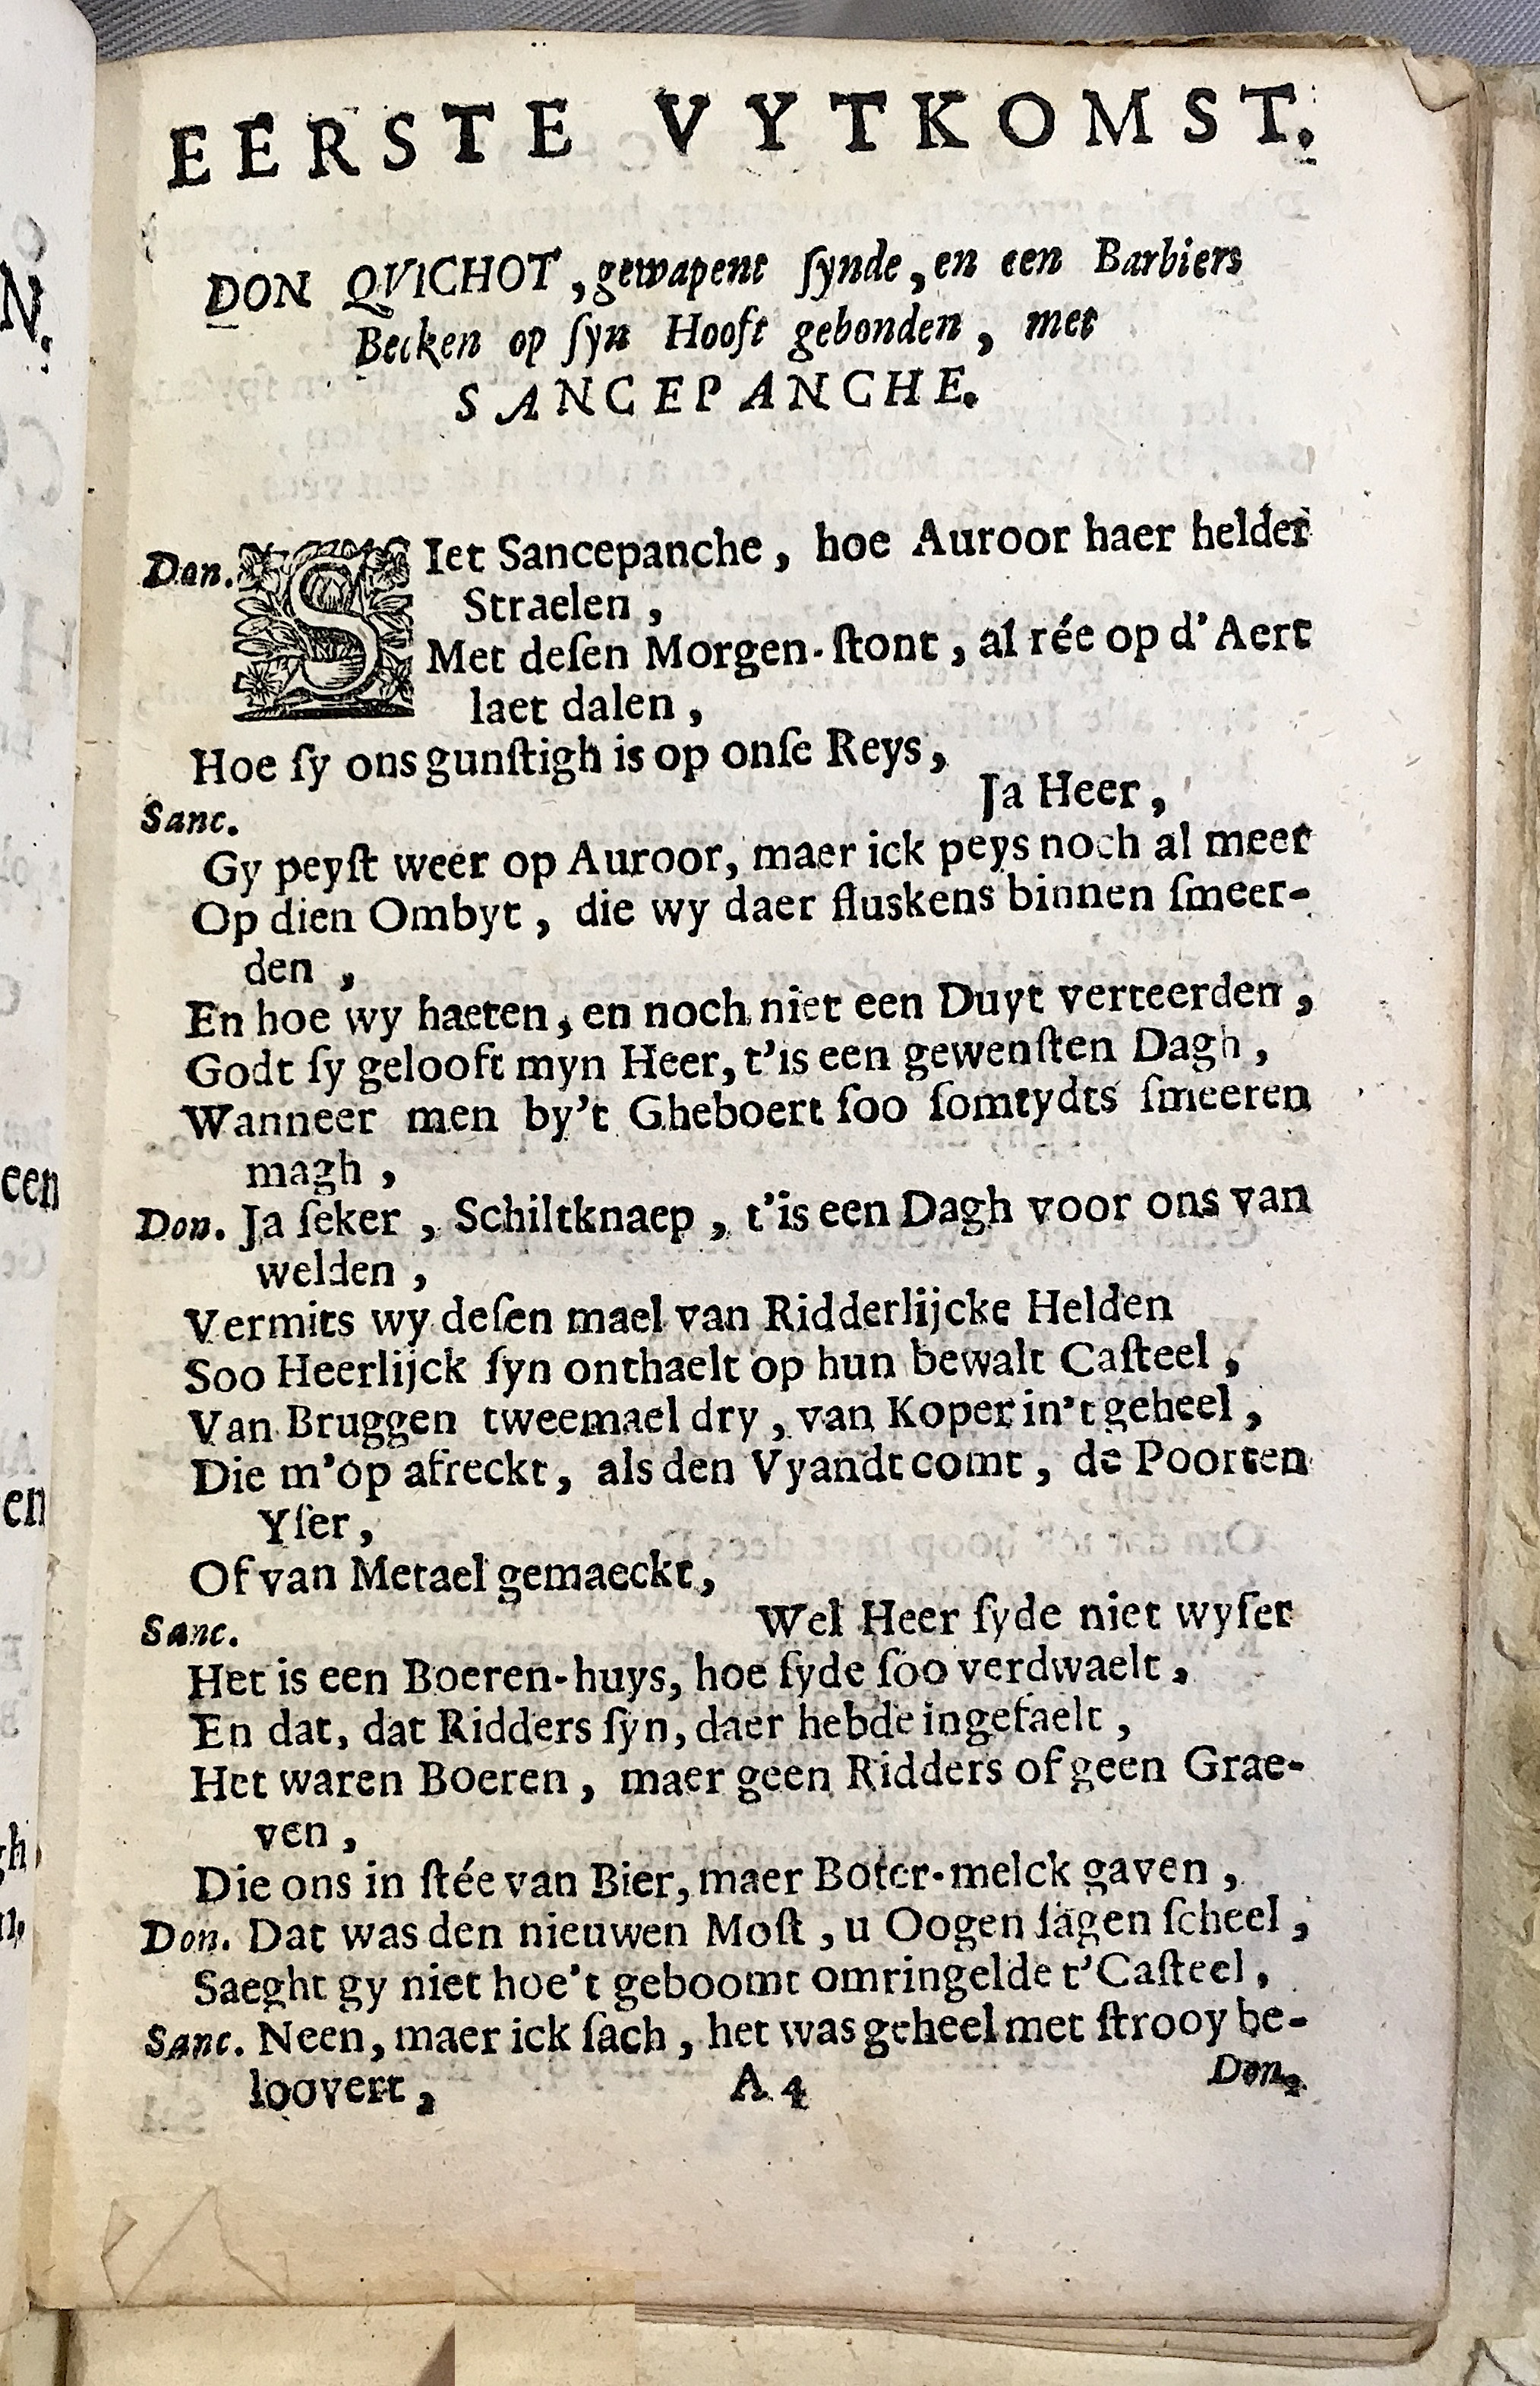 EERSTE VYTKOMST.
DON QVICHOT, gewapent ſynde, en een Barbiers
Becken op ſyn Hooft gebonden, met
SANCEPANCHE.
Don. SIet Sancepanche, hoe Auroor haer helder
Straelen,
Met deſen Morgen-ſtont, al rée op d'Aert
laet dalen,
Hoe ſy ons gunſtigh is op onſe Reys,
Ja Heer,
Sanc.
Gy peyſt weer op Auroor, maer ick peys noch al meer
Op dien Ombyt, die wy daer fluskens binnen ſmeer-
den,
En hoe wy haeten, en noch niet een Duyt verteerden,
Godt ſy gelooft myn Heer, t'is een gewenſten Dagh,
Wanneer men by't Gheboert ſoo ſomtydts ſmeeren
magh,
Don. Ja ſeker, Schiltknaep, t'is een Dagh voor ons van
welden,
Vermits wy deſen mael van Ridderlijcke Helden
Soo Heerlijck ſyn onthaelt op hun bewalt Caſteel,
Van Bruggen tweemael dry, van Koper in't geheel,
Die m'op aſreckt, als den Vyandt comt, de Poorten
Yſer,
Of van Metael gemaeckt,
Wel Heer ſyde niet wyſer
Sanc.
Het is een Boeren-huys, hoe ſyde ſoo verdwaelt,
En dat, dat Ridders ſyn, daer hebde ingefaelt,
Het waren Boeren, maer geen Ridders of geen Grae-
ven,
Die ons in ſtée van Bier, maer Boter-melck gaven,
Don. Dat was den nieuwen Moſt, u Oogen ſagen ſcheel,
Saeght gy niet hoe't geboomt omringelde t'Caſteel,
Sanc. Neen, maer ick ſach, het was geheel met ſtrooy be-
loovert,
A 4
Don.
N.
een
en